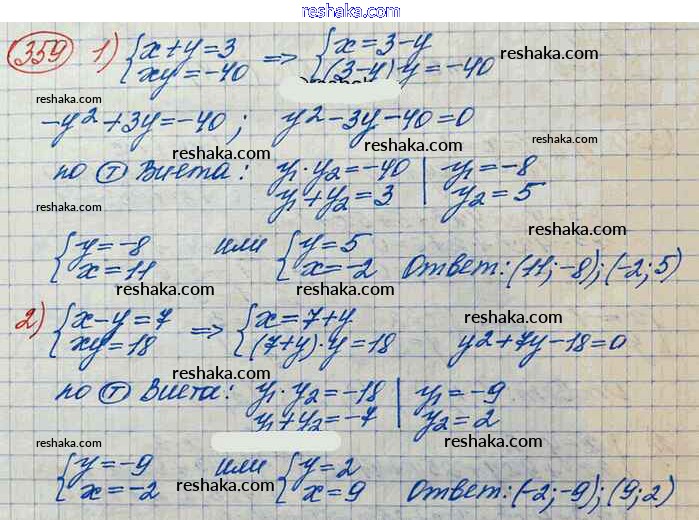 reshaka.com
359 1) {x+y=3 xy=-40 => {x=3-y (3-y)y=-40 reshaka.com
reshaka.com
-y²+3y=-40; y²-3y-40=0
reshaka.com
по Т Виета: y₁·y₂=-40 y₁+y₂=3 | y₁=-8 y₂=5
reshaka.com reshaka.com
{y=-8 x=11 или {y=5 x=-2 Ответ: (11;-8);(-2;5)
reshaka.com reshaka.com
2) {x-y=7 xy=18 => {x=7+y (7+y)·y=18 y²+7y-18=0
reshaka.com reshaka.com
по Т Виета: y₁·y₂=-18 y₁+y₂=-7 | y₁=-9 y₂=2
reshaka.com reshaka.com
{y=-9 x=-2 или {y=2 x=9 Ответ: (-2;-9);(9;2)
reshaka.com reshaka.com
reshaka.com